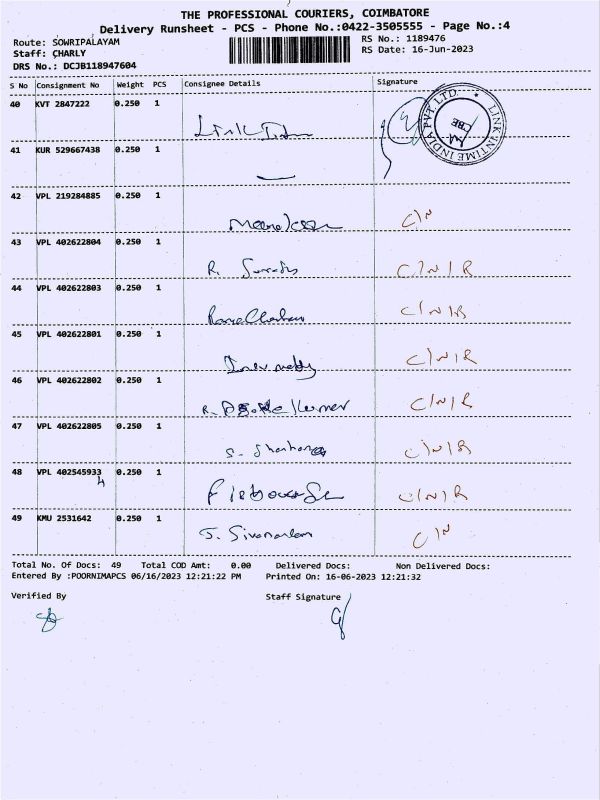 THE PROFESSIONAL COURIERS, COIMBATORE
Delivery Runsheet - PCS - Phone No.:0422-3505555 - Page No.:4
Route: SOWRIPALAYAM
RS No.: 1189476
Staff: CHARLY
RS Date: 16-Jun-2023
DRS No.: DCJB118947604
S No Consignment No Weight PCS Consignee Details Signature
40 KVT 2847222 0.250 1 Link
LINK INTIME INDIA PVT. LTD. CBE
41 KUR 529667438 0.250 1
42 VPL 219284885 0.250 1 C/N
43 VPL 402622804 0.250 1 R. C/N/R
44 VPL 402622803 0.250 1 C/N/R
45 VPL 402622801 0.250 1 C/N/R
46 VPL 402622802 0.250 1 R. Kumar C/N/R
47 VPL 402622805 0.250 1 S. C/N/R
48 VPL 402545933 0.250 1 C/N/R
4
49 KMU 2531642 0.250 1 C/N
Total No. Of Docs: 49 Total COD Amt: 0.00 Delivered Docs: Non Delivered Docs:
Entered By :POORNIMAPCS 06/16/2023 12:21:22 PM Printed On: 16-06-2023 12:21:32
Verified By Staff Signature